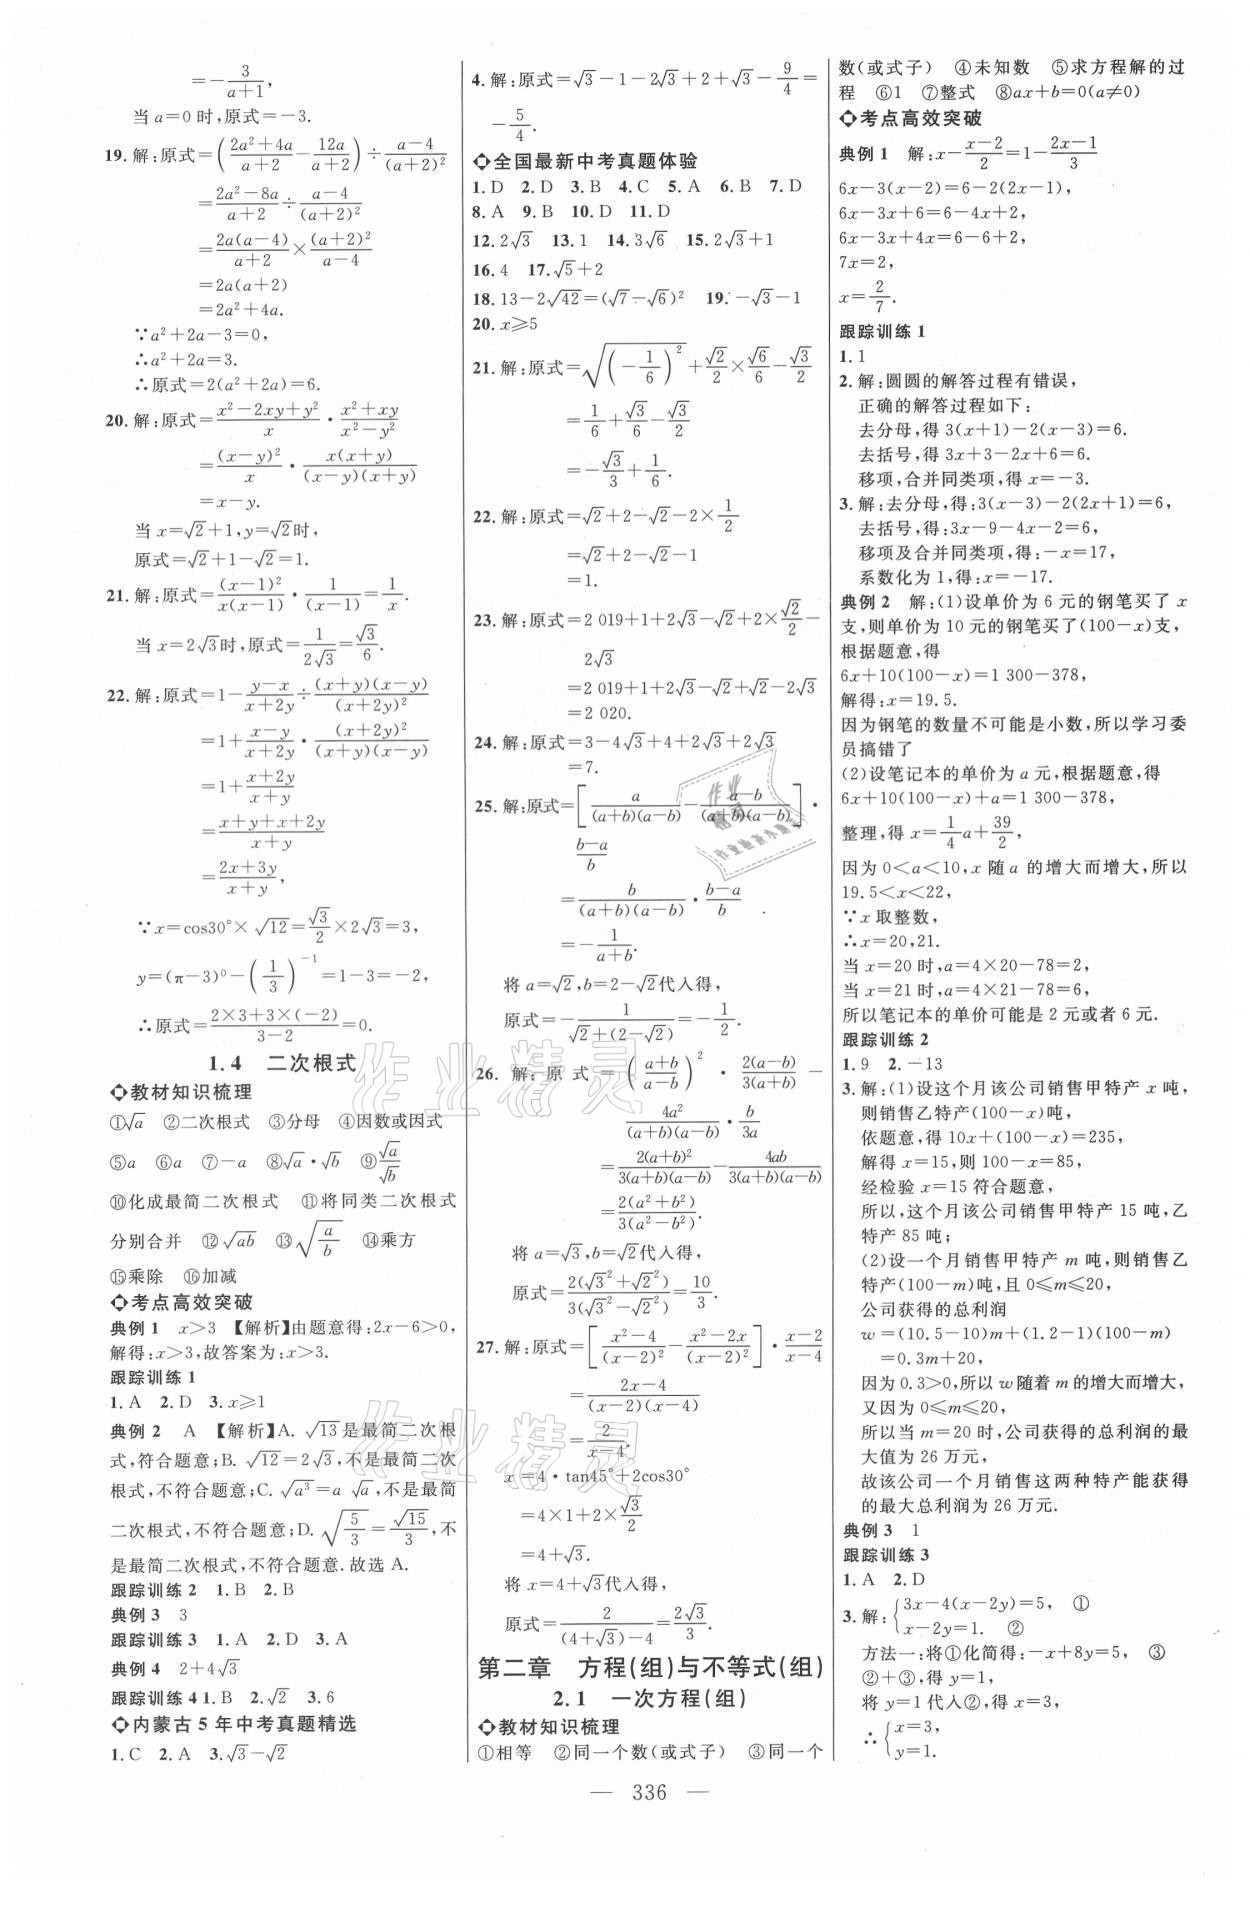 =-3/(a+1),
当 a=0 时,原式=-3.
19. 解:原式=((2a²+4a)/(a+2)-12a/(a+2))÷(a-4)/(a+2)²
=(2a²-8a)/(a+2)÷(a-4)/(a+2)²
=2a(a-4)/(a+2)×(a+2)²/(a-4)
=2a(a+2)
=2a²+4a.
∵a²+2a-3=0,
∴a²+2a=3.
∴原式=2(a²+2a)=6.
20. 解:原式=(x²-2xy+y²)/x·(x²+xy)/(x²-y²)
=(x-y)²/x·x(x+y)/(x-y)(x+y)
=x-y.
当 x=√2+1,y=√2时,
原式=√2+1-√2=1.
21. 解:原式=(x-1)²/x(x-1)·1/(x-1)=1/x.
当 x=2√3时,原式=1/(2√3)=√3/6.
22. 解:原式=1-(y-x)/(x+2y)÷(x+y)(x-y)/(x+2y)²
=1+(x-y)/(x+2y)·(x+2y)²/(x+y)(x-y)
=1+(x+2y)/(x+y)
=(x+y+x+2y)/(x+y)
=(2x+3y)/(x+y),
∵x=cos30°×√12=√3/2×2√3=3,
y=(π-3)⁰-(1/3)⁻¹=1-3=-2,
∴原式=(2×3+3×(-2))/(3-2)=0.
1.4 二次根式
◇教材知识梳理
①√a ②二次根式 ③分母 ④因数或因式
⑤a ⑥a ⑦-a ⑧√a·√b ⑨√a/√b
⑩化成最简二次根式 ⑪将同类二次根式
分别合并 ⑫√ab ⑬√(a/b) ⑭乘方
⑮乘除 ⑯加减
◇考点高效突破
典例 1 x>3 【解析】由题意得:2x-6>0,
解得:x>3,故答案为:x>3.
跟踪训练 1
1. A 2. D 3. x≥1
典例 2 A 【解析】A. √13是最简二次根
式,符合题意;B. √12=2√3,不是最简二次
根式,不符合题意;C. √a³=a √a,不是最简
二次根式,不符合题意;D. √(5/3)=√15/3,不
是最简二次根式,不符合题意.故选 A.
跟踪训练 2 1. B 2. B
典例 3 3
跟踪训练 3 1. A 2. D 3. A
典例 4 2+4√3
跟踪训练 4 1. B 2. √2 3. 6
◇内蒙古 5 年中考真题精选
1. C 2. A 3. √3-√2
4. 解:原式=√3-1-2√3+2+√3-9/4=
-5/4.
◇全国最新中考真题体验
1. D 2. D 3. B 4. C 5. A 6. B 7. D
8. A 9. B 10. D 11. D
12. 2√3 13. 1 14. 3√6 15. 2√3+1
16. 4 17. √5+2
18. 13-2√42=(√7-√6)² 19. -√3-1
20. x≥5
21. 解:原式=√((-1/6)²)+√2/2×√6/6-√3/2
=1/6+√3/6-√3/2
=-√3/3+1/6.
22. 解:原式=√2+2-√2-2×1/2
=√2+2-√2-1
=1.
23. 解:原式=2 019+1+2√3-√2+2×√2/2-
2√3
=2 019+1+2√3-√2+√2-2√3
=2 020.
24. 解:原式=3-4√3+4+2√3+2√3
=7.
25. 解:原式=[a/(a+b)(a-b)-(a-b)/(a+b)(a-b)]·
(b-a)/b
=b/(a+b)(a-b)·(b-a)/b
=-1/(a+b).
将 a=√2,b=2-√2代入得,
原式=-1/(√2+(2-√2))=-1/2.
26. 解:原式=((a+b)/(a-b))²·2(a-b)/3(a+b)-
4a²/(a+b)(a-b)·b/3a
=2(a+b)²/3(a+b)(a-b)-4ab/3(a+b)(a-b)
=2(a²+b²)/3(a²-b²).
将 a=√3,b=√2代入得,
原式=2(√3²+√2²)/3(√3²-√2²)=10/3.
27. 解:原式=[(x²-4)/(x-2)²-(x²-2x)/(x-2)²]·(x-2)/(x-4)
=(2x-4)/(x-2)(x-4)
=2/(x-4).
x=4·tan45°+2cos30°
=4×1+2×√3/2
=4+√3.
将 x=4+√3代入得,
原式=2/((4+√3)-4)=2√3/3.
第二章 方程(组)与不等式(组)
2.1 一次方程(组)
◇教材知识梳理
①相等 ②同一个数(或式子) ③同一个
数(或式子) ④未知数 ⑤求方程解的过
程 ⑥1 ⑦整式 ⑧ax+b=0(a≠0)
◇考点高效突破
典例 1 解:x-(x-2)/2=1-(2x-1)/3
6x-3(x-2)=6-2(2x-1),
6x-3x+6=6-4x+2,
6x-3x+4x=6-6+2,
7x=2,
x=2/7.
跟踪训练 1
1. 1
2. 解:圆圆的解答过程有错误,
正确的解答过程如下:
去分母,得 3(x+1)-2(x-3)=6.
去括号,得 3x+3-2x+6=6.
移项,合并同类项,得 x=-3.
3. 解:去分母,得:3(x-3)-2(2x+1)=6,
去括号,得:3x-9-4x-2=6,
移项及合并同类项,得:-x=17,
系数化为 1,得:x=-17.
典例 2 解:(1)设单价为 6 元的钢笔买了 x
支,则单价为 10 元的钢笔买了(100-x)支,
根据题意,得
6x+10(100-x)=1 300-378,
解得:x=19.5.
因为钢笔的数量不可能是小数,所以学习委
员搞错了
(2)设笔记本的单价为 a 元,根据题意,得
6x+10(100-x)+a=1 300-378,
整理,得 x=1/4a+39/2,
因为 0<a<10,x 随 a 的增大而增大,所以
19.5<x<22,
∵x 取整数,
∴x=20,21.
当 x=20 时,a=4×20-78=2,
当 x=21 时,a=4×21-78=6,
所以笔记本的单价可能是 2 元或者 6 元.
跟踪训练 2
1. 9 2. -13
3. 解:(1)设这个月该公司销售甲特产 x 吨,
则销售乙特产(100-x)吨,
依题意,得 10x+(100-x)=235,
解得 x=15,则 100-x=85,
经检验 x=15 符合题意,
所以,这个月该公司销售甲特产 15 吨,乙
特产 85 吨;
(2)设一个月销售甲特产 m 吨,则销售乙
特产(100-m)吨,且 0≤m≤20,
公司获得的总利润
w=(10.5-10)m+(1.2-1)(100-m)
=0.3m+20,
因为 0.3>0,所以 w 随着 m 的增大而增大,
又因为 0≤m≤20,
所以当 m=20 时,公司获得的总利润的最
大值为 26 万元,
故该公司一个月销售这两种特产能获得
的最大总利润为 26 万元.
典例 3 1
跟踪训练 3
1. A 2. D
3. 解:{3x-4(x-2y)=5, ①
x-2y=1. ②
方法一:将①化简得:-x+8y=5 ③
②+③,得 y=1,
将 y=1 代入②,得 x=3,
∴{x=3,
y=1.
— 336 —
作业精灵
作业精灵